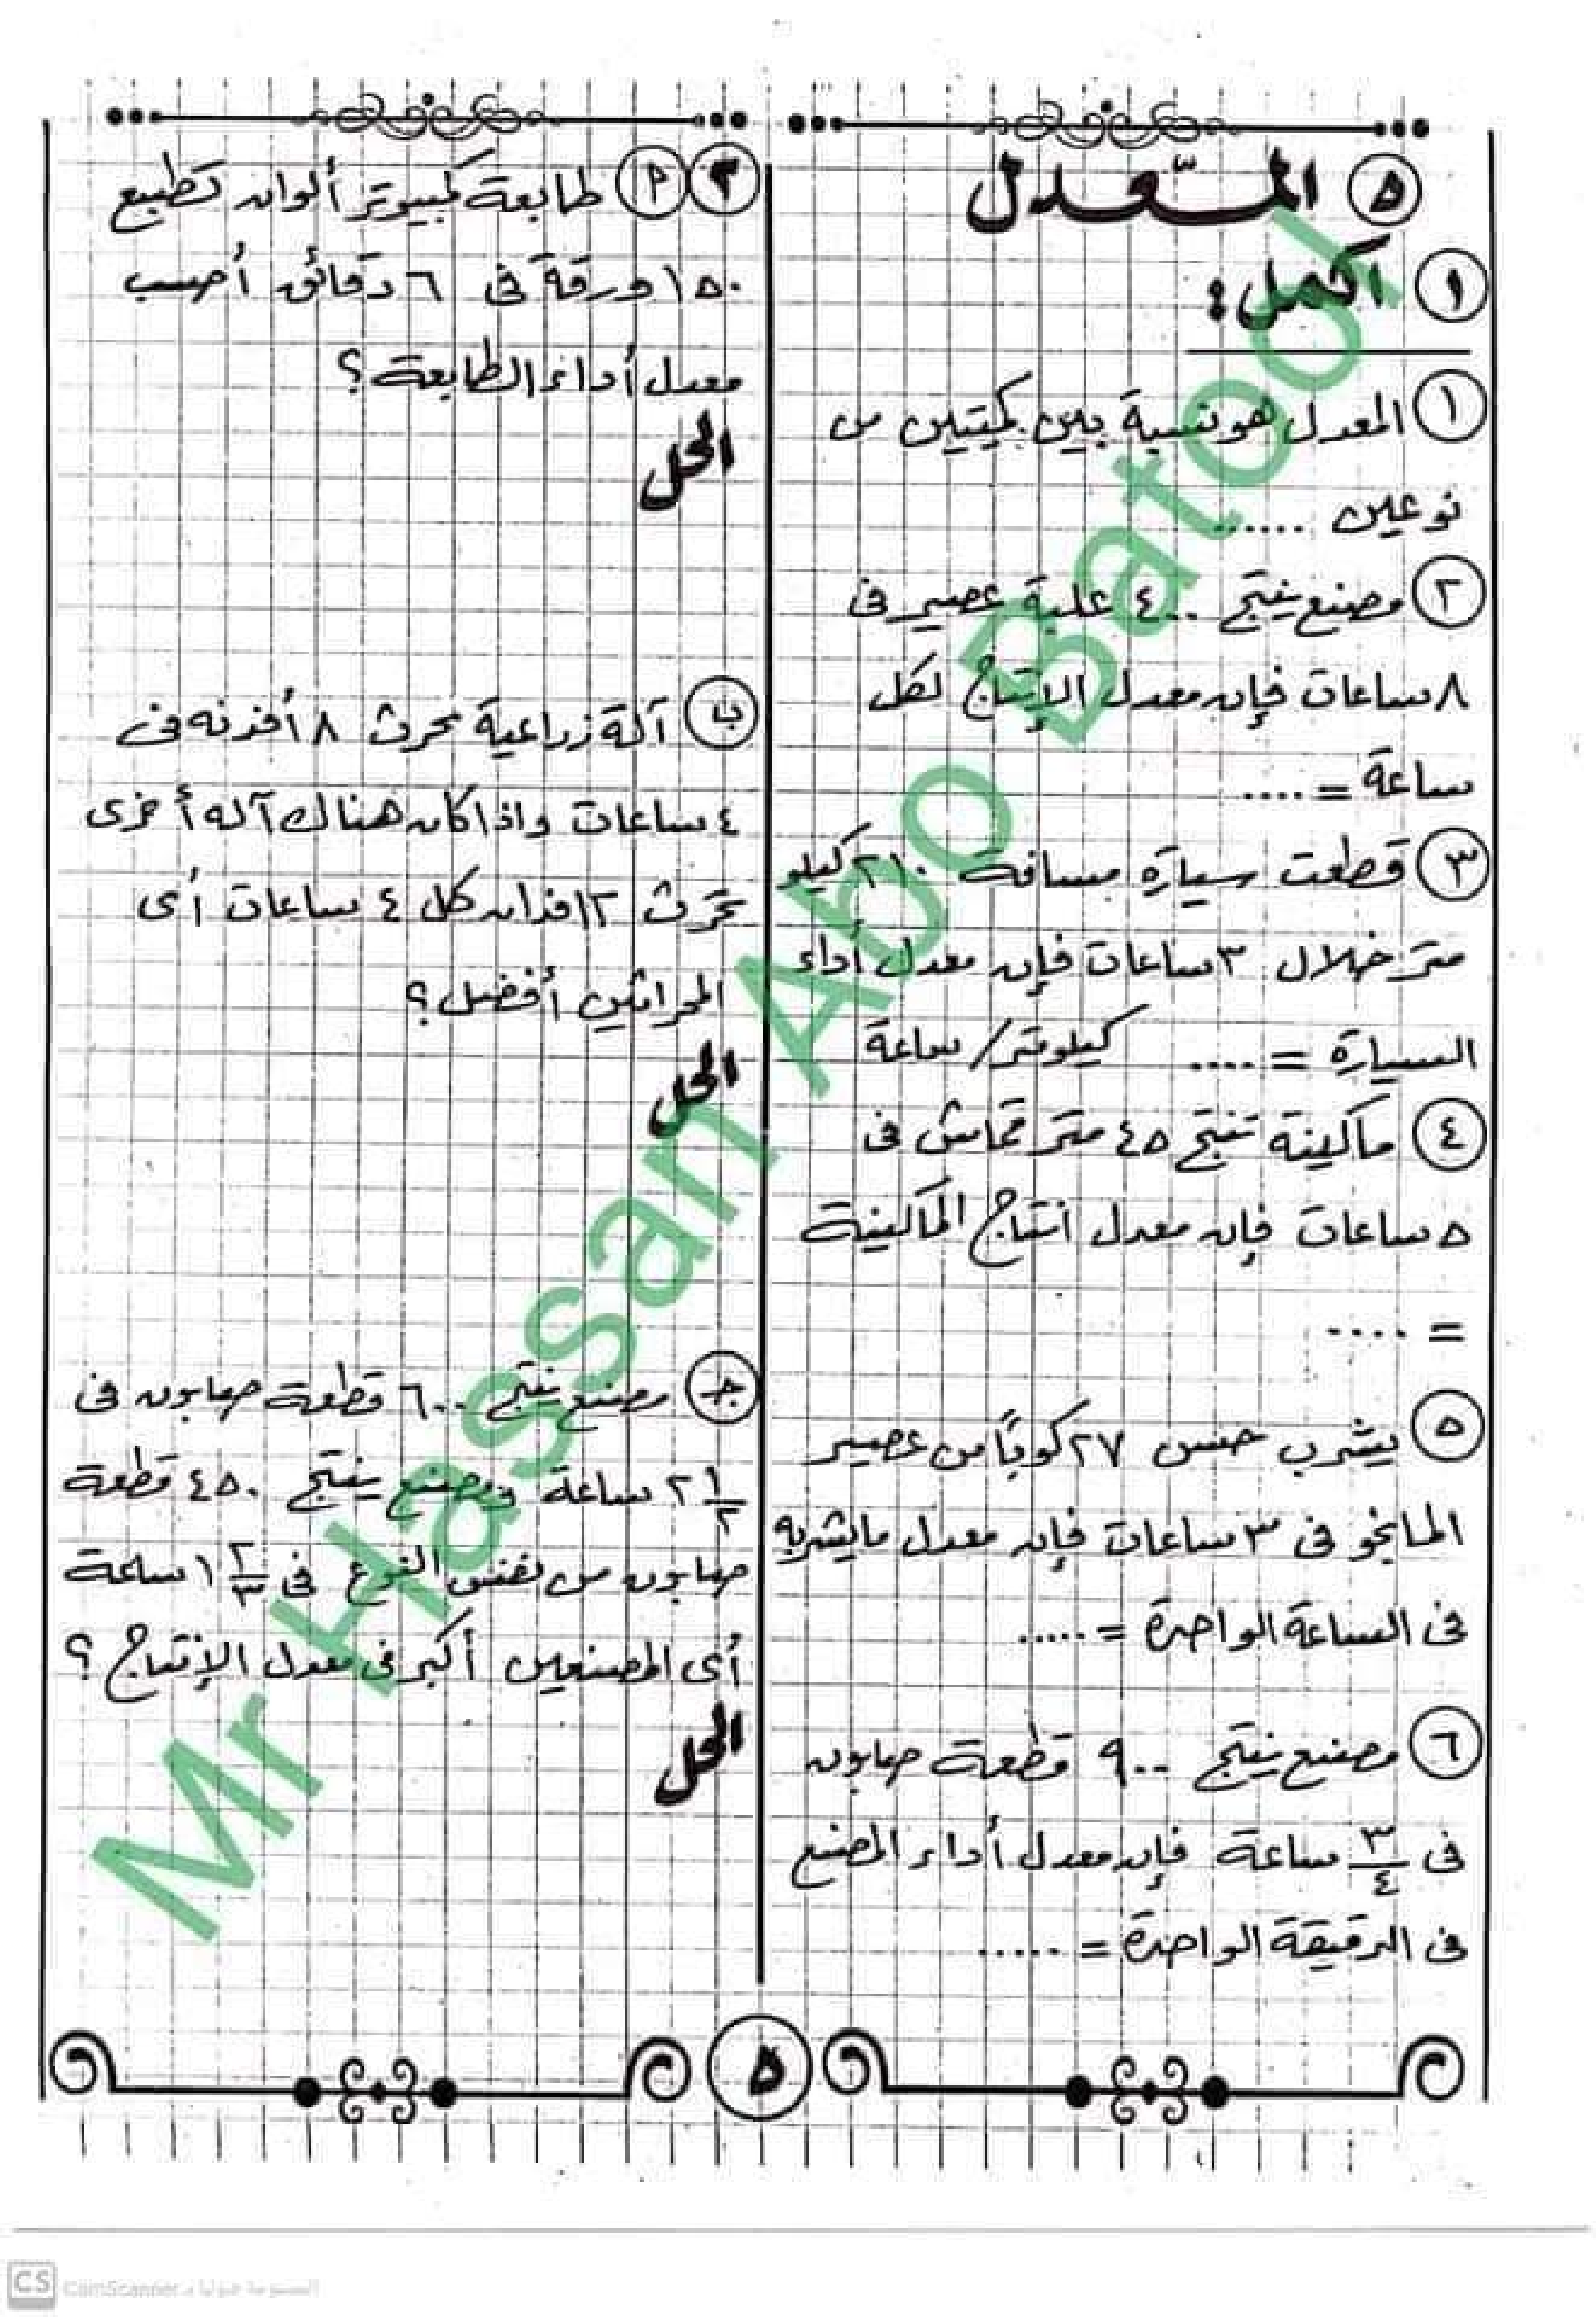 ٥ المعدل
١ اكمل:
١ المعدل هو نسبة بين كميتين من
نوعين ......
٢ مصنع ينتج ٤٠٠ علبة عصير فى
٨ ساعات فإن معدل الإنتاج لكل
ساعة = ....
٣ قطعت سيارة مسافة ٢١٠ كيلو
متر خلال ٣ ساعات فإن معدل أداء
السيارة = .... كيلومتر/ ساعة
٤ ماكينة تنتج ٤٥ متر قماش فى
٥ ساعات فإن معدل انتاج الماكينة
= ....
٥ يشرب حسن ٢٧ كوبًا من عصير
المانجو فى ٣ ساعات فإن معدل مايشربه
فى الساعة الواحدة = .....
٦ مصنع ينتج ٩٠٠ قطعة صابون
فى ٣/٤ ساعة فإن معدل أداء المصنع
فى الدقيقة الواحدة = .....
٢ م طابعة كمبيوتر ألوان تطبع
١٥٠ ورقة فى ٦ دقائق أحسب
معدل أداء الطابعة ؟
الحل
ب آلة زراعية تحرث ٨ أفدنه فى
٤ ساعات واذا كان هناك آله أخرى
تحرث ١٢ فدان كل ٤ ساعات أى
المحراثين أفضل ؟
الحل
جـ مصنع ينتج ٦٠٠ قطعة صابون فى
٢ ١/٢ ساعة ومصنع ينتج ٤٥٠ قطعة
صابون من نفس النوع فى ١ ٢/٣ ساعة
أى المصنعين أكبر فى معدل الإنتاج ؟
الحل
٥
Mr Hassan Abo Batool
CS CamScanner الممسوحة ضوئيا بـ